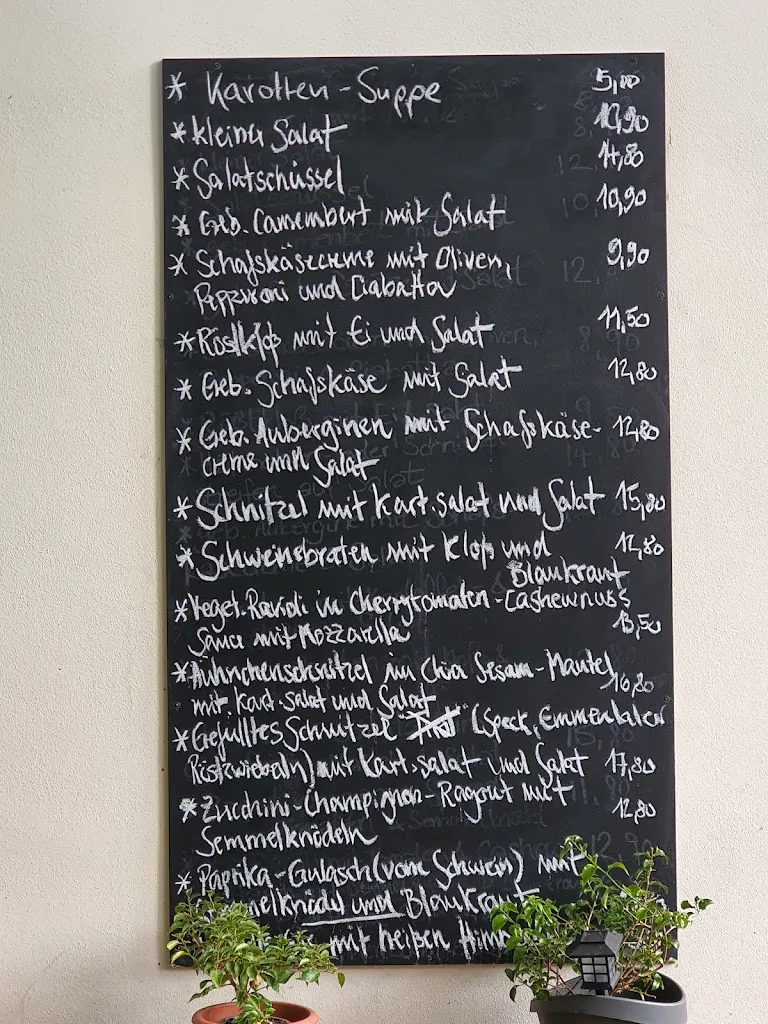 * Karotten-Suppe 5,00
* kleiner Salat
* Salatschüssel 14,80
* Geb. Camembert mit Salat 10,90
* Schafskäsecreme mit Oliven, 9,90
Pepperoni und Ciabatta
* Röstklöß mit Ei und Salat 11,50
* Geb. Schafskäse mit Salat 12,80
* Geb. Auberginen mit Schafskäse- 12,80
creme und Salat
* Schnitzel mit Kart.salat und Salat 15,80
* Schweinsbraten mit Kloß und 12,80
Blaukraut
* Veget. Ravioli in Cherrytomaten-Cashewnuss
Sauce mit Mozzarella 13,50
* Hühnchenschnitzel im Chia Sesam-Mantel
mit Kart.salat und Salat 16,80
* Gefülltes Schnitzel (Speck, Emmentaler
Röstzwiebeln) mit Kart.salat und Salat 17,80
* Zucchini-Champignon-Ragout mit 12,80
Semmelknödeln
* Paprika-Gulasch (vom Schwein) mit
melknödel und Blaukraut
mit heißen Him